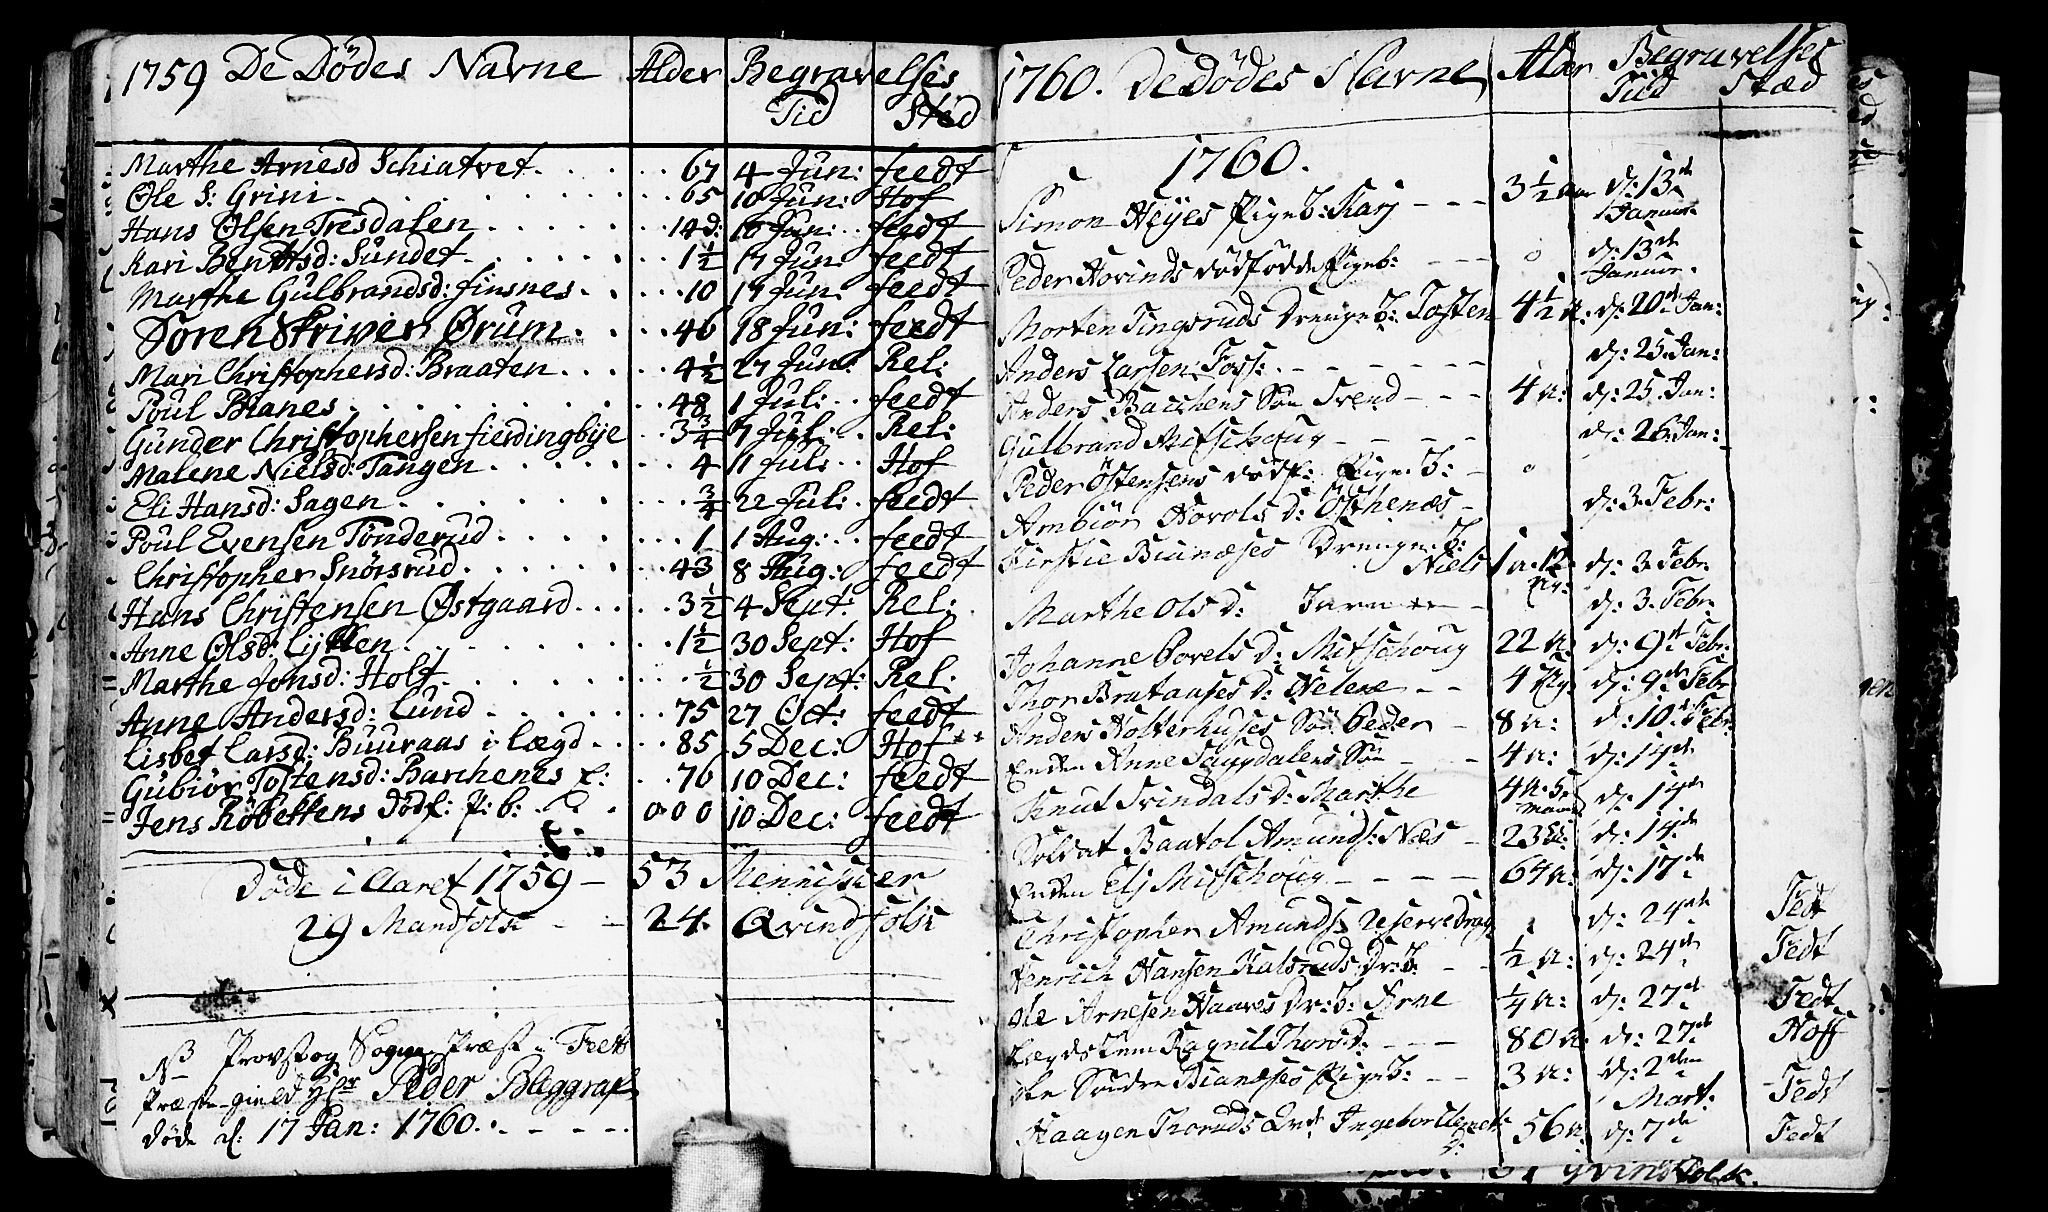 1759 De Dödes Navne Alder Begravelses
Tid Stæd
Marthe Arnesd Schiatvet 67 4 Jun: feedt
Ole S: Grini 65 10 Jun: Hof
Hans Olsen Tresdalen 14 d: 10 Jun: feedt
Kari Bentsd: Sundet 1½ 17 Jun feedt
Marthe Gulbrandsd: finsnes 10 17 Jun feedt
Soren Skriver Ørum 46 18 Jun: feedt
Mari Christophersd: Braaten 4½ 27 Jun: Rel:
Poul Bianes 48 1 Jul: feedt
Gunder Christophersen fierdingbÿe 3¾ 7 Jul: Rel:
Malene Nielsd: Tangen 4 11 Jul: Hof
Eli Hansd: Sagen ¾ 22 Jul: feedt
Poul Evensen Tönderud 1 1 Aug: feedt
Christopher Snörsrud 43 8 Aug: feedt
Hans Christensen Østgaard 3½ 4 Sept: Rel:
Anne Olsd: Lykken 1½ 30 Sept: Hof
Marthe Jonsd: Holt ½ 30 Sept: Rel:
Anne Andersd: Lund 75 27 Oct: feedt
Lisbet Larsd: Buuraas i Lægd 85 5 Dec: Hof
Gubiör Tostensd: Barchenes 76 10 Dec: feedt
Jens Röbekkens Dödf: P: b: 000 10 Dec: feedt
Döde i Aaret 1759 – 53 Mennischer
29 Mandfolk – – 24. Qvindfolk
NB Provst og Sogne Præst i Feets
Præste-gield Hr Peder Bleggraf
döde d: 17 Jan: 1760.
1760. De Dödes Navne Alder Begravelses
Tiid Stæd
1760.
Simon Heÿes Pigeb: Karj – – – 3½ d: 13de
Januar.
Peder Hovinds dödfödde Pigeb: – – – 0 d: 13de
Januar.
Morten Tingsruds Drenge b: Tosten 4½ d: 20de Jan:
Anders Larsen Foss: d: 25 Jan:
Anders Bacchens Sön Svend – – – 4 a: d: 25 Jan:
Gulbrand Mitschoug – – – – d: 26 Jan:
Peder Östensens dödf: Pige b: – 0
Ambiör Hovols d: Östhenæs – d: 3 Febr:
Kirstie Biunæses Drenge b:
Niels 1 a. 12 d: 3 Febr:
Marthe Ols d: d: 3 Febr:
Johanne Povels d: Mitschoug 22 a: d: 9de Febr:
Thor Brataases d: Helene – – 4 d: 9de Febr
Anders Holterhuses Sön Peder – 8 a: d: 10de Febr:
Enken Anne Sagsdalens Sön – – – 4 a: d: 14de
Knut Svindals d: Marthe 4 a. 5 d: 14de
Soldat Baatol Amunds: Næs – 23 d: 14de
Enken Elj Mitschoug – – – – 64 a: d: 17de
Christopher Amunds: Reserve Drag: d: 24de Fedt
Henrich Hansen Kalsruds Dr: b: – – ½ a: d: 24de Fedt
Ole Arnesen Haares Dr: b: Arne ¼ a: d: 27de Fedt
Lægdslem Ragnil Thorsd: – – – 80 a: d: 27de Hoff
Ole Söndre Bianeses Pigeb: – – 3 a: d: 2den
Mart: – Fedt
Haagen Thoruds Ingebor 56 a: d: 7de Fedt
d:
qvindfolk.